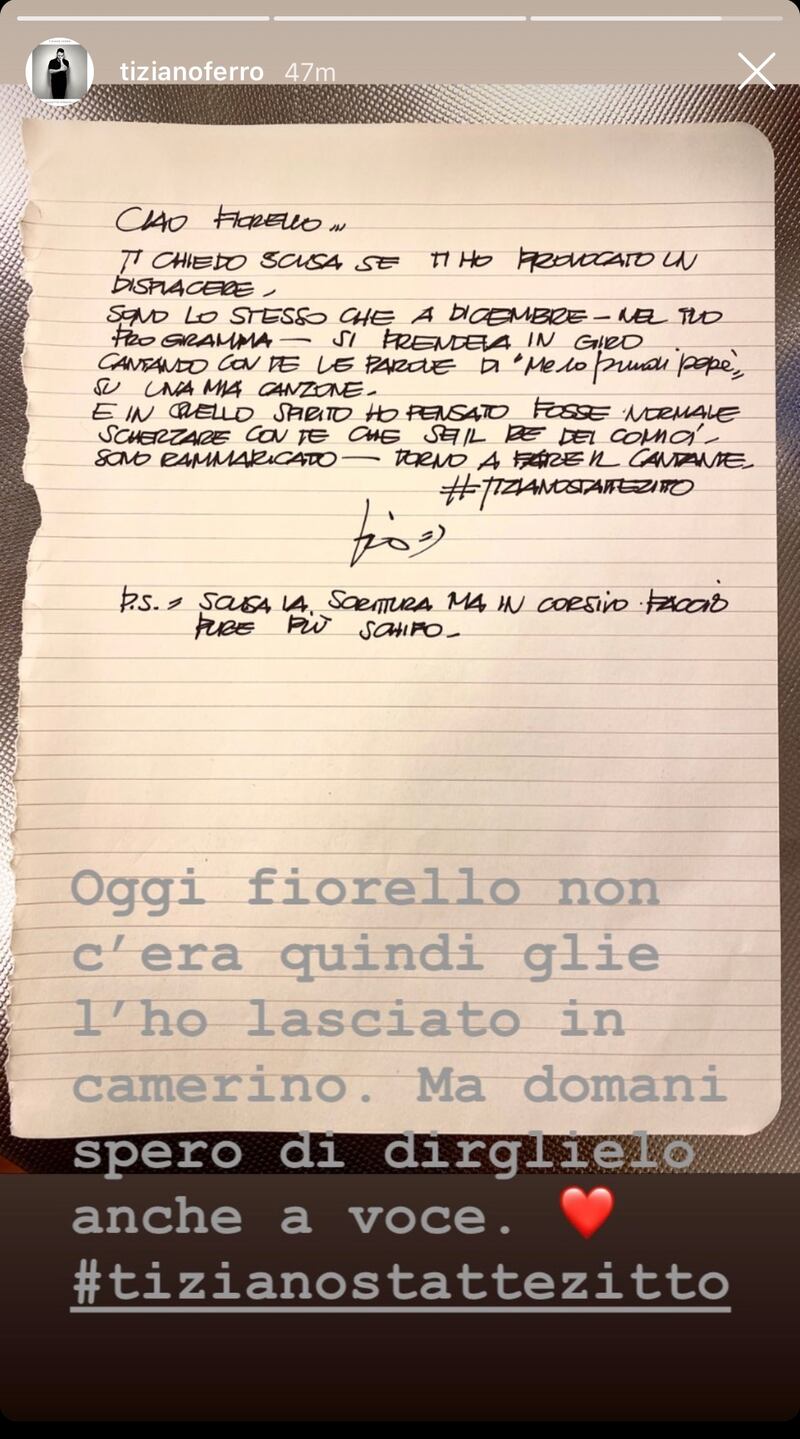 tizianoferro 47m
CIAO FIORELLO...
TI CHIEDO SCUSA SE TI HO PROVOCATO UN
DISPIACERE.
SONO LO STESSO CHE A DICEMBRE - NEL TUO
PROGRAMMA - SI PRENDEVA IN GIRO
CANTANDO CON TE LE PAROLE DI "Me lo prendi papè"
SU UNA MIA CANZONE.
E IN QUELLO SPIRITO HO PENSATO FOSSE NORMALE
SCHERZARE CON TE CHE SEI IL RE DEI COMICI.
SONO RAMMARICATO - TORNO A FARE IL CANTANTE.
#TIZIANOSTATTEZITTO
P.S. = SCUSA LA SCRITTURA MA IN CORSIVO FACCIO
PURE PIÙ SCHIFO.
Oggi fiorello non
c'era quindi glie
l'ho lasciato in
camerino. Ma domani
spero di dirglielo
anche a voce. ❤️
#tizianostattezitto